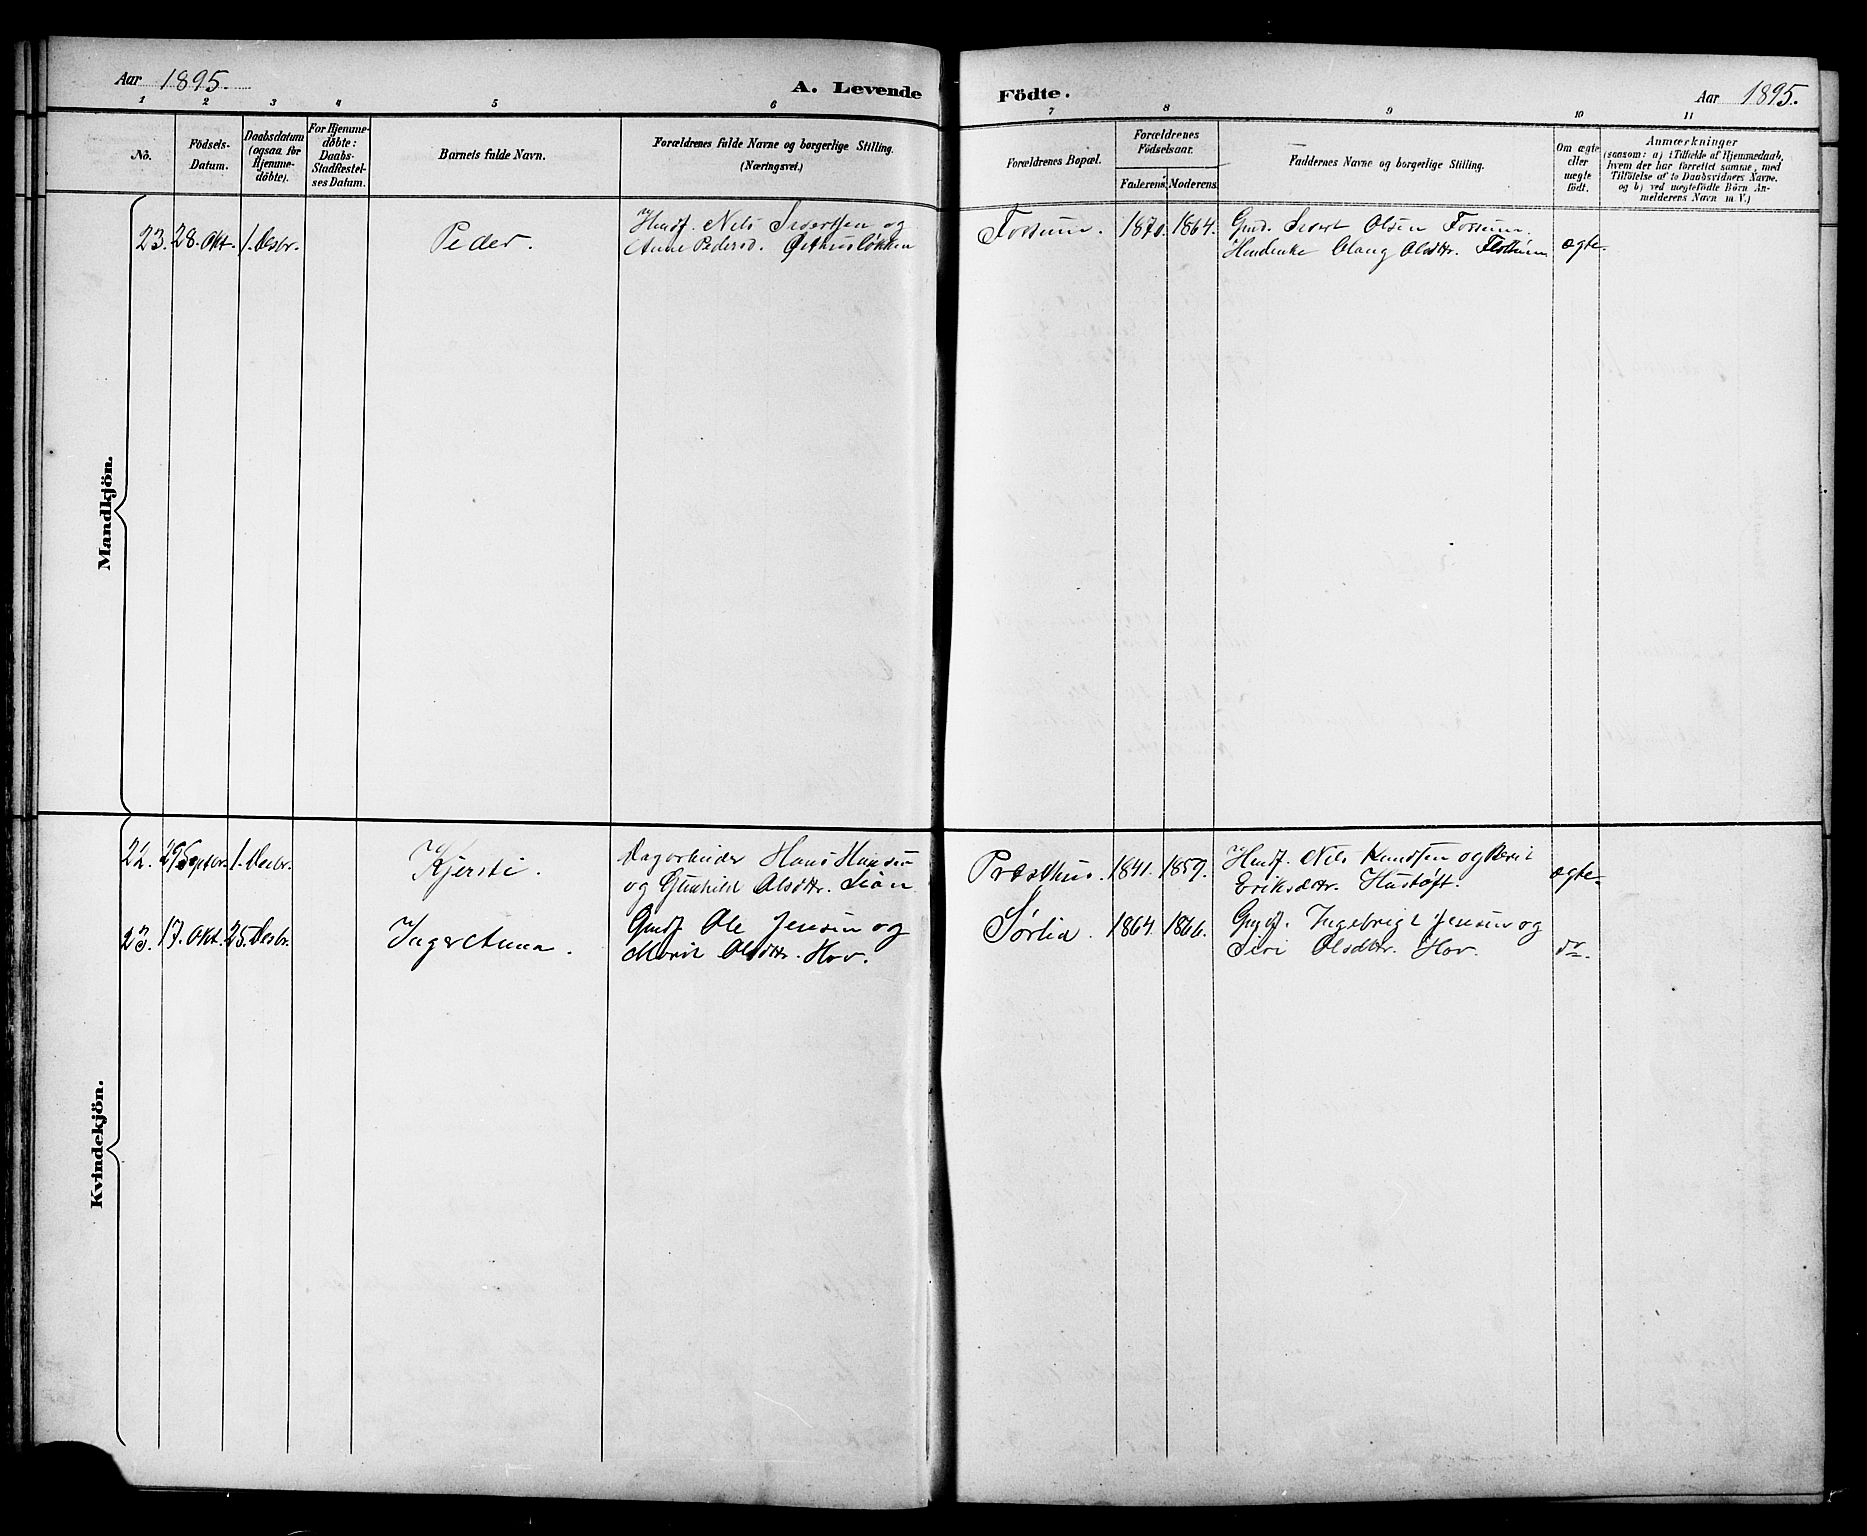 Aar 1895.
A. Levende Födte.
Aar 1895.
1 2 3 4 5 6 7 8 9 10 11
Nö.
Födsels-Datum.
Daabsdatum (ogsaa for Hjemme-döbte).
For Hjemme-döbte: Daabs-Stadfæstel-ses Datum.
Barnets fulde Navn.
Forældrenes fulde Navne og borgerlige Stilling. (Næringsvei.)
Forældrenes Bopæl.
Forældrenes Födselsaar.
Faderens. Moderens.
Faddernes Navne og borgerlige Stilling.
Om ægte eller uægte födt.
Anmærkninger
(saasom: a) i Tilfælde af Hjemmedaab,
hvem der har forrettet samme, med
Tilföielse af to Daabsvidners Navne.
og b) ved uægtefödte Börn An-
melderens Navn m V.)
Mandkjön.
23. 28. Okt. 1. Desbr. Peder. Husf. Nils Sivertsen og
Anne Pedersd. Østhusløkken
Fossum. 1870. 1864. Gmd. Sivert Olsen Fossum.
Olsdtr. ægte.
Kvindekjön.
22. 29 Septbr. 1. Desbr. Kjersti. Dagarbeider Hans Hansen
og Gunhild Olsdtr.
Præsthus. 1841. 1859. Husf. Nils Knudsen og Berit
Eriksdtr. Hustøft. ægte.
23. 17. Okt. 25. Desbr. Inger Anna. Gmdf. Ole Jensen og
Marit Olsdtr. Hov.
Sørlia. 1864. 1866. Ingebrigt Jensen og
Siri Olsdtr. Hov. do.